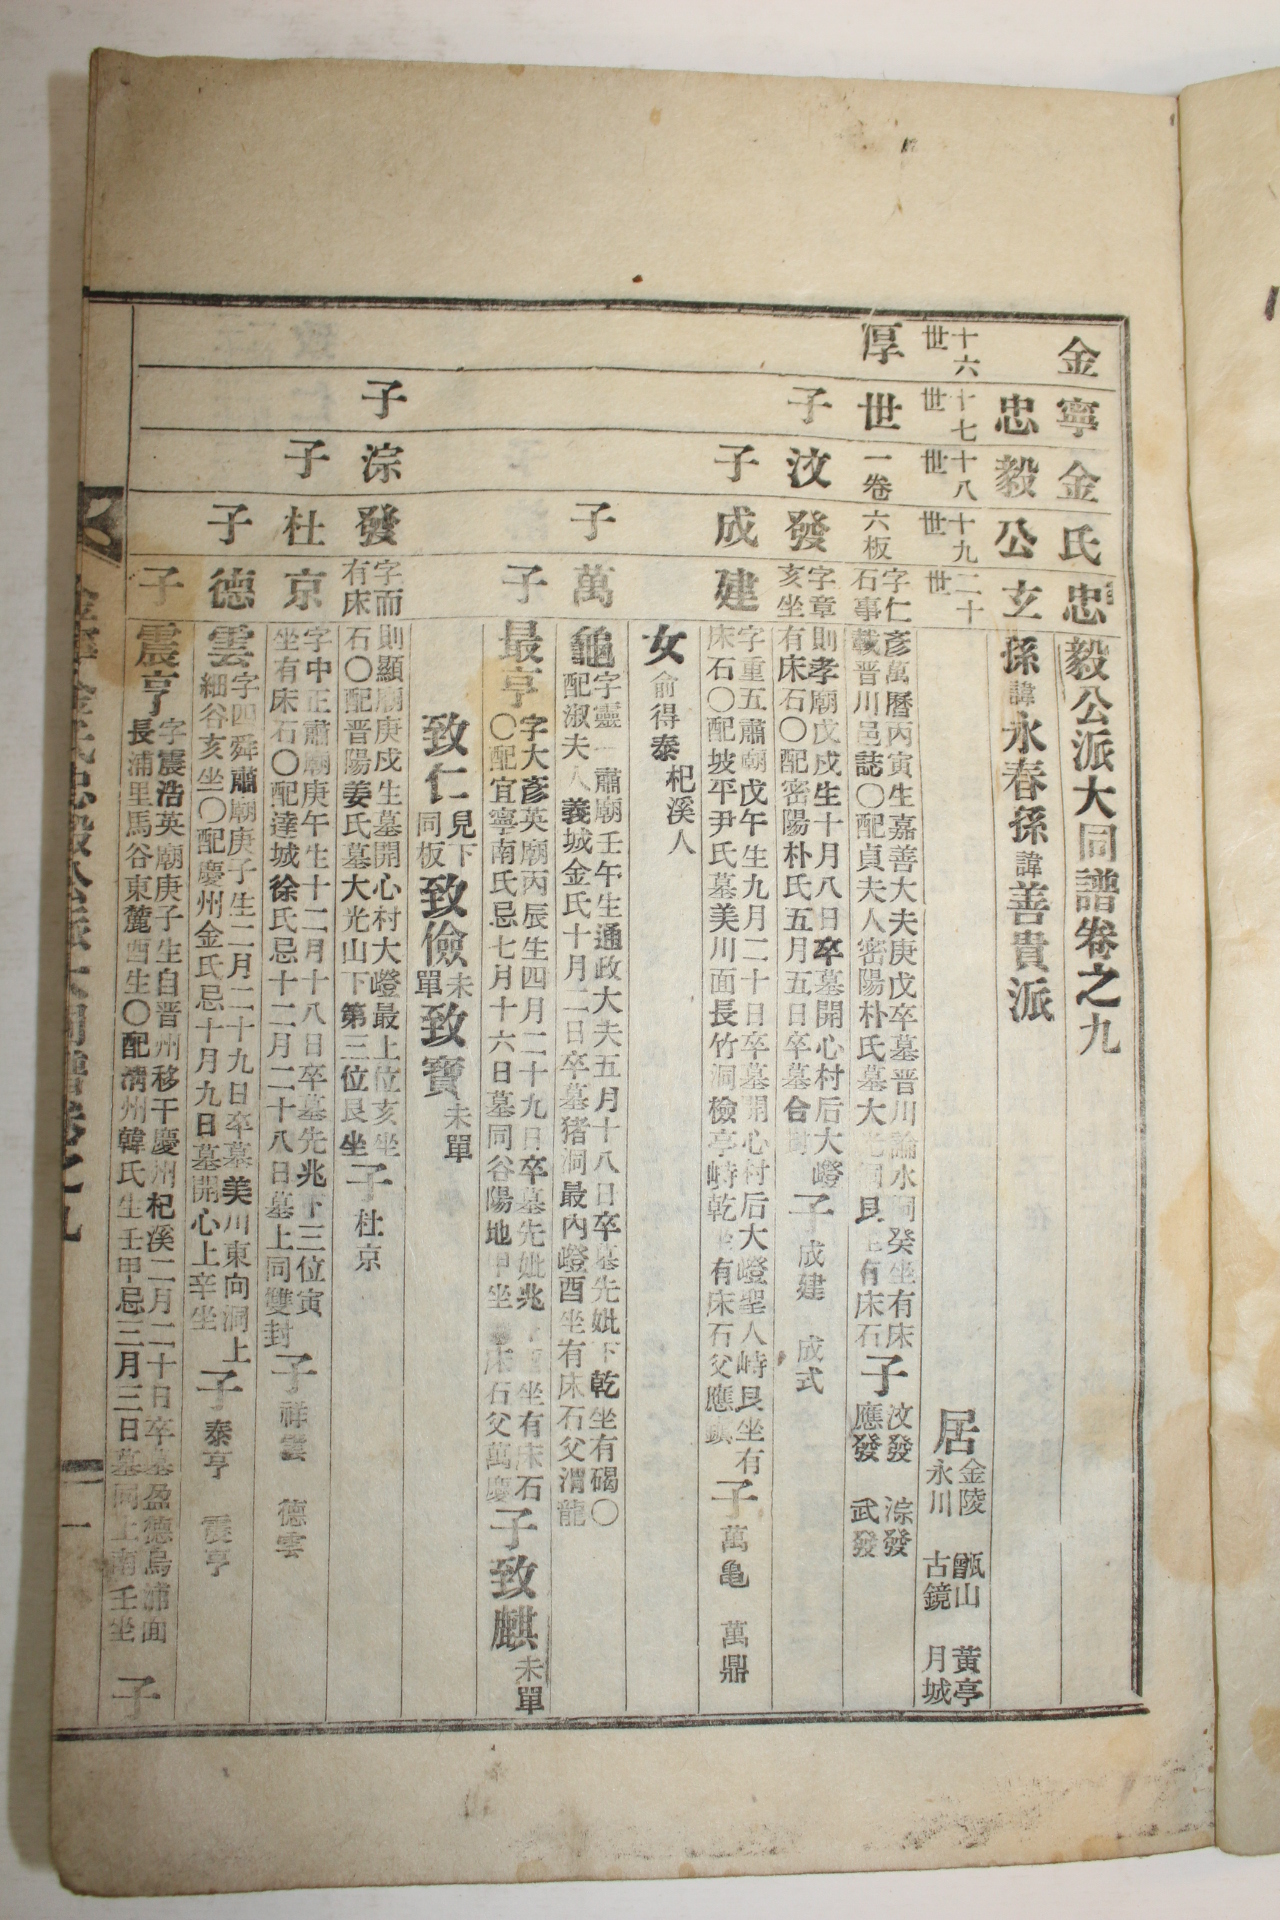 金寧金氏忠毅公派大同譜卷之九
忠毅公玄孫諱永春孫諱善貴派
十六世 十七世 十八世 十九世 二十世
居 金陵 甑山 黃亭
永川 古鏡 月城
厚世 一卷六板 字仁彥萬曆丙寅生嘉善大夫庚戊卒墓晋川論水洞癸坐有床
石事載晋川邑誌〇配貞夫人密陽朴氏墓大 艮 有床石 子 汶發 淙發
應發 武發
子汶發 字章則孝廟戊戌生十月八日卒墓開心村后大嶝
亥坐有床石〇配密陽朴氏五月五日卒墓合 子 成建 成式
子成建 字重五肅廟戊午生九月二十日卒墓開心村后大嶝聖人峙艮坐有
床石〇配坡平尹氏墓美川面長竹洞檢亭峙乾 有床石父應 子 萬亀 萬鼎
女 俞得泰 杞溪人
子萬龜 字靈一肅廟壬午生通政大夫五月十八日卒墓先妣下乾坐有碣〇
配淑夫人義城金氏十月二日卒墓猪洞最內嶝酉坐有床石父渭龍
子最亨 字大彥英廟丙辰生四月二十九日卒墓先妣兆 坐有床石
〇配宜寧南氏忌七月十六日墓同谷陽地甲坐 床石父萬慶 子致麒 未單
致仁 見下同板 致儉 未單 致寶 未單
子淙發 字而則顯廟庚戌生墓開心村大嶝最上位亥坐
有床石〇配晋陽姜氏墓大光山下第三位艮坐 子 杜京
子杜京 字中正肅廟庚午生十二月十八日卒墓先兆下三位寅
坐有床石〇配達城徐氏忌十二月二十八日墓上同雙封 子 祥雲 德雲
子德雲 字四舜肅廟庚子生二月二十九日卒墓美川東向洞上
細谷亥坐〇配慶州金氏忌十月九日墓開心上辛坐 子 泰亨 震亨
子震亨 字震浩英廟庚子生自晋州移于慶州杞溪二月二十日卒墓盈德烏浦面
長浦里馬谷東麓酉生〇配淸州韓氏生壬甲忌三月三日墓同上南壬坐 子
金寧金氏忠毅公派大同譜卷之九
一